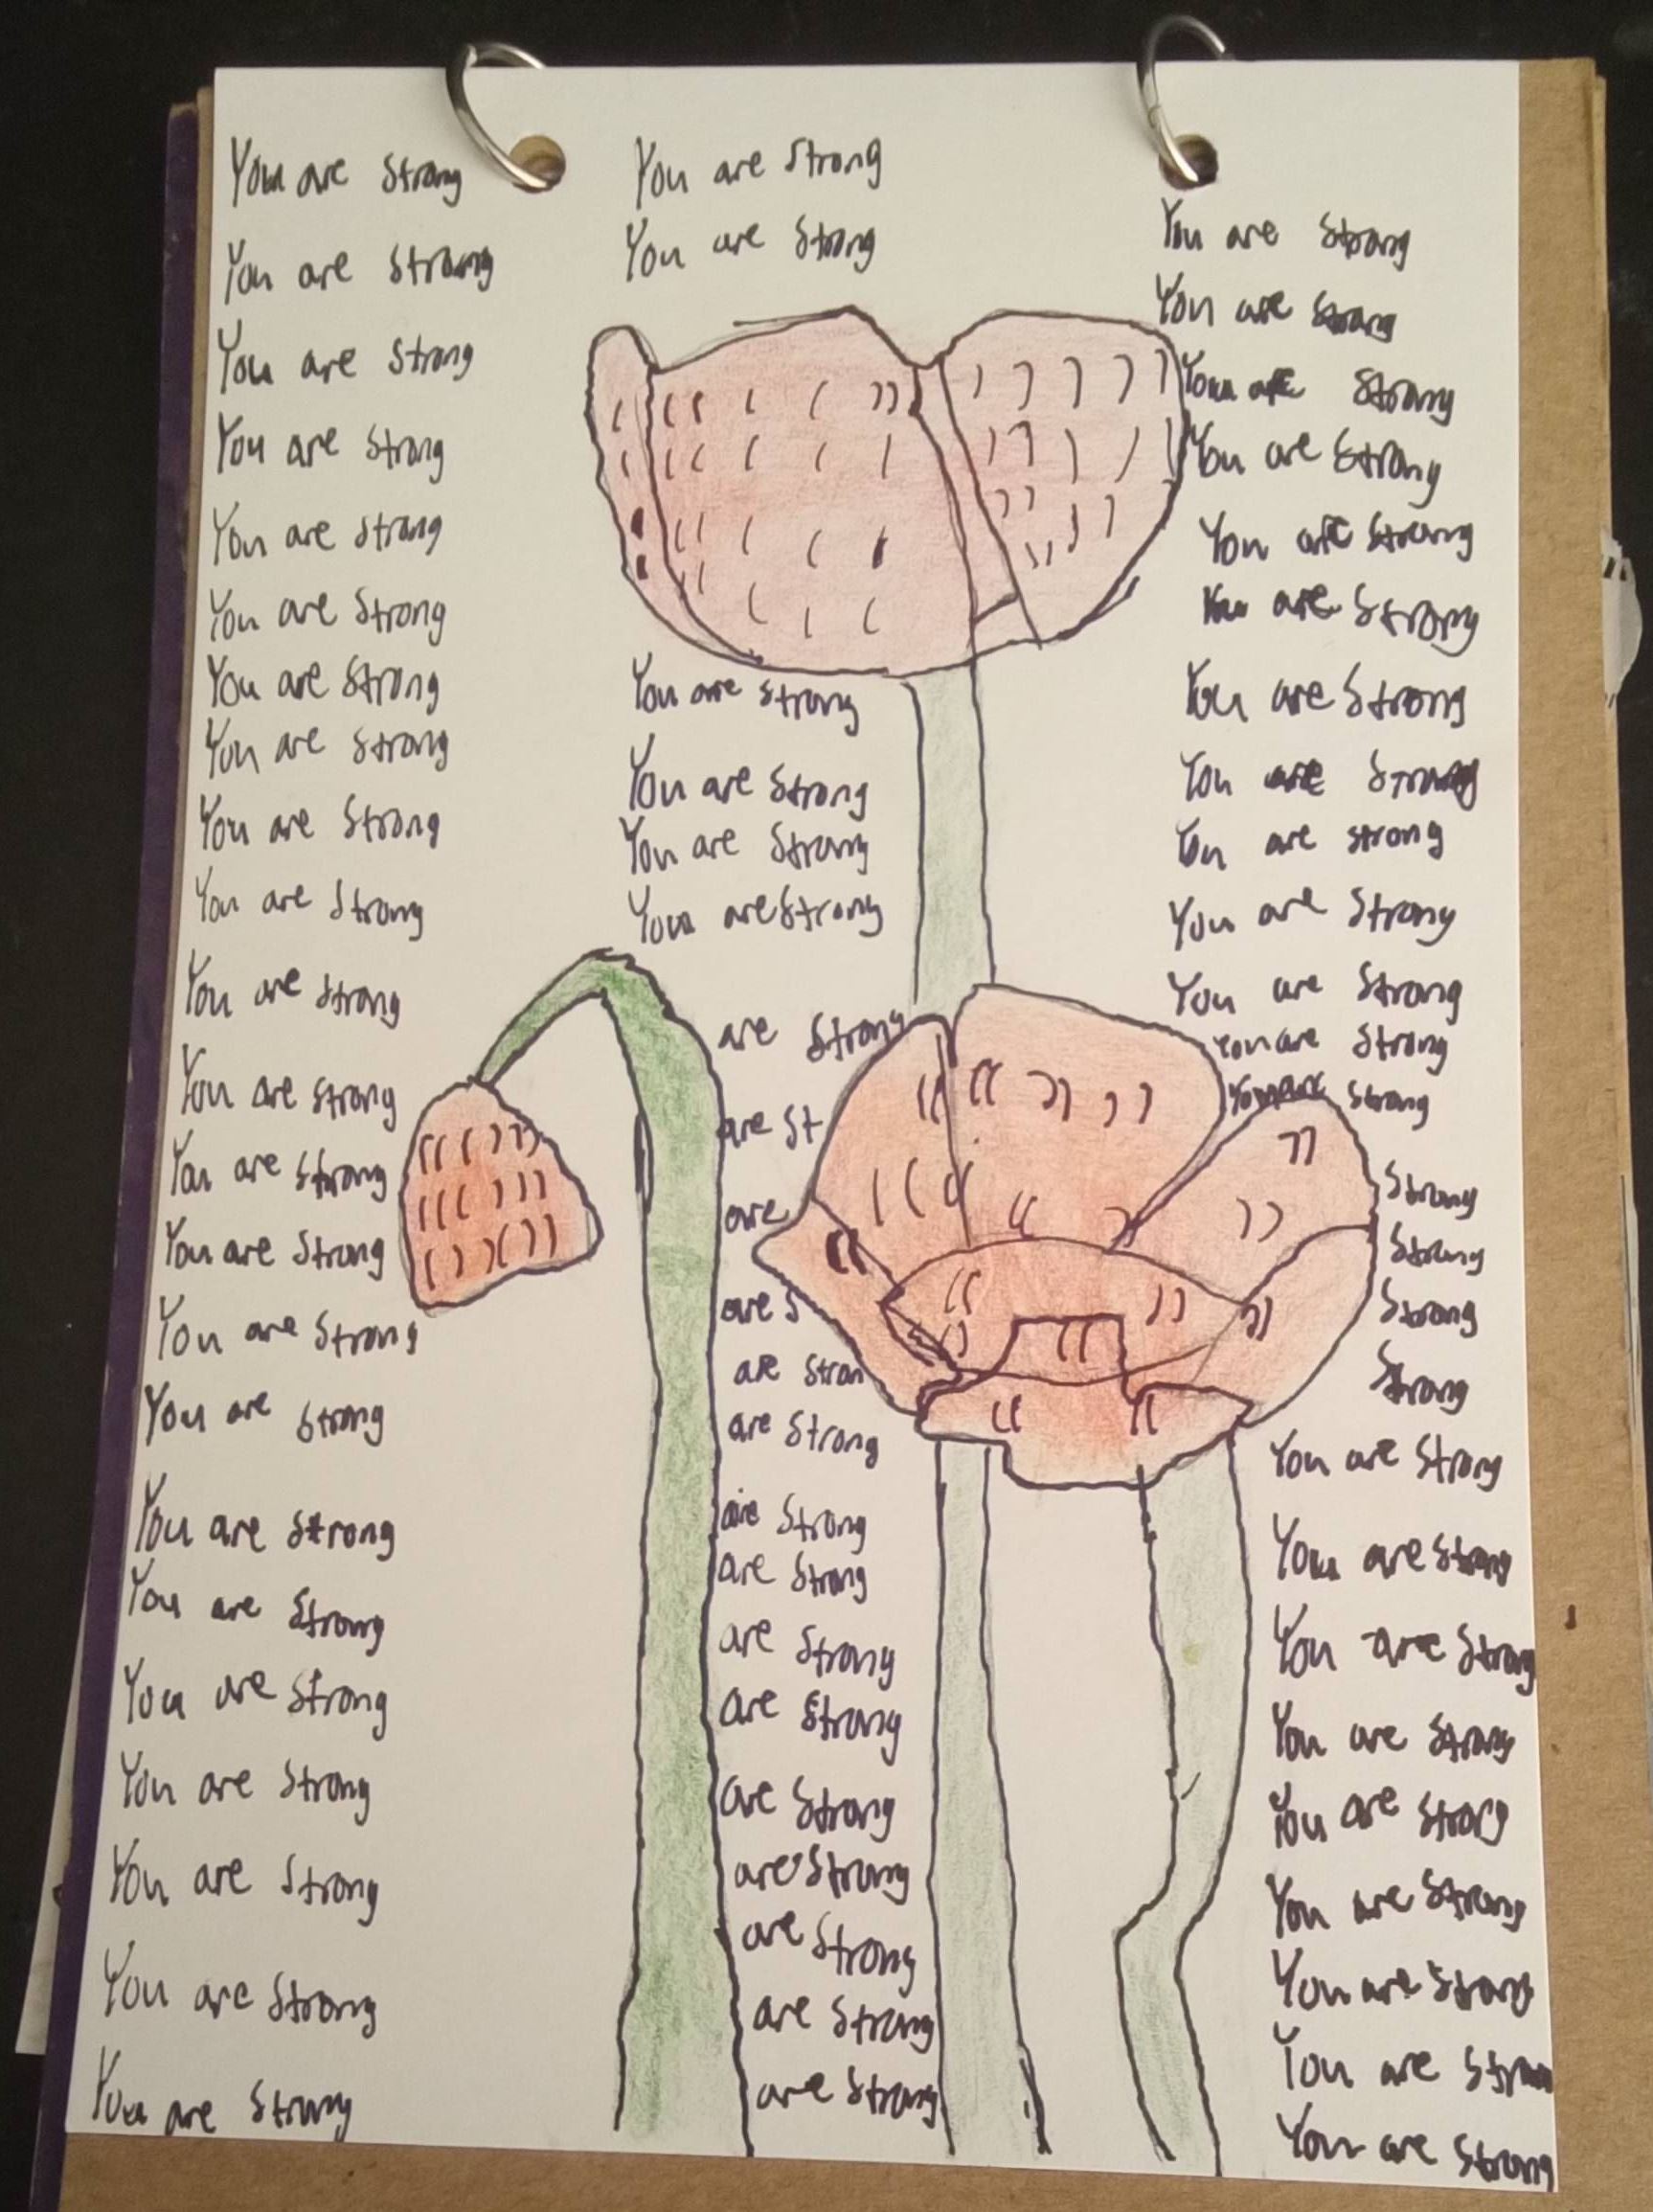 You are Strong
You are Strong
You are Strong
You are Strong
You are Strong
You are Strong
You are Strong
You are Strong
You are Strong
You are Strong
You are Strong
You are Strong
You are Strong
You are Strong
You are Strong
You are Strong
You are Strong
You are Strong
You are Strong
You are Strong
You are Strong
You are Strong
You are Strong
You are Strong
You are Strong
You are Strong
You are Strong
You are Strong
You are Strong
are Strong
are St
are
are S
are Stron
are Strong
are Strong
are Strong
are Strong
are Strong
are Strong
are Strong
are Strong
are Strong
are Strong
You are Strong
You are Strong
You are Strong
You are Strong
You are Strong
You are Strong
You are Strong
You are Strong
You are strong
You are Strong
You are Strong
You are Strong
You are Strong
Strong
Strong
Strong
Strong
You are Strong
You are Strong
You are Strong
You are Strong
You are Strong
You are Strong
You are Strong
You are Strong
You are Strong